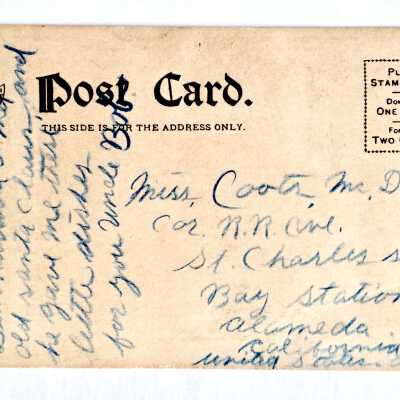 Post Card.
THIS SIDE IS FOR THE ADDRESS ONLY.
PL
STAM
DO
ONE
FO
TWO
old santa claus, and
he gave me these
little dishes
for you Uncle Bob
Miss. Coots, Mc. D
Cor. R.R. Ave.
St. Charles S
Bay Station
Alameda
California
United States.